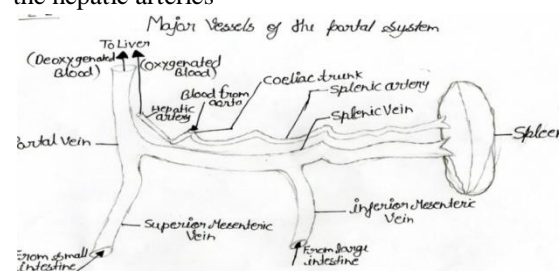 the hepatic arteries
Major Vessels of the portal system
To Liver
(Deoxygenated
Blood)
(Oxygenated
Blood)
Coeliac trunk
Blood from
aorta
Splenic artery
Hepatic
artery
Splenic Vein
Portal Vein
Spleen
Superior Mesenteric
Vein
Inferior Mesenteric
Vein
From small
intestine
From large
intestine